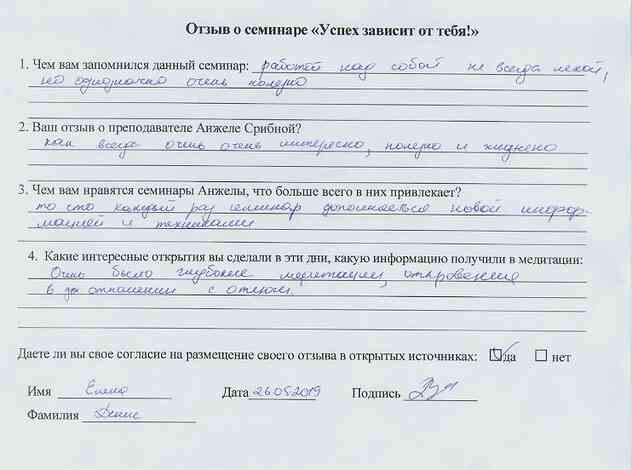 Отзыв о семинаре «Успех зависит от тебя!»
1. Чем вам запомнился данный семинар: работой над собой не всегда легкой,
но однозначно очень полезно
2. Ваш отзыв о преподавателе Анжеле Срибной?
как всегда очень очень интересно, полезно и жизненно
3. Чем вам нравятся семинары Анжелы, что больше всего в них привлекает?
то что каждый раз семинар дополняеться новой инфор-
мацией и техниками
4. Какие интересные открытия вы сделали в эти дни, какую информацию получили в медитации:
Очень было глубокие медитации, откровения
в отношении с
Даете ли вы свое согласие на размещение своего отзыва в открытых источниках: ☑ да ☐ нет
Имя Елена Дата 26.05.2019 Подпись
Фамилия Денис